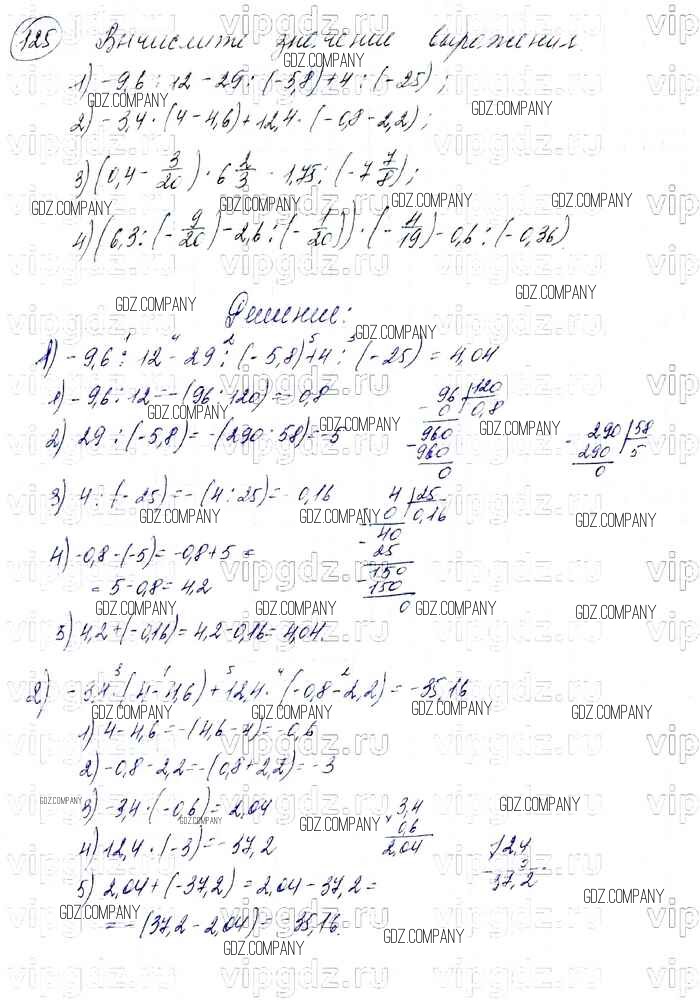 125 Вычислите значение выражения
1) -9,6 : 12 - 29 : (-5,8) + 4 : (-25);
2) -3,4 · (4 - 4,6) + 12,4 · (-0,8 - 2,2);
3) (0,4 - 3/20) · 6 2/3 - 1,75 : (-7 7/8);
4) (6,3 : (-9/20) - 2,6 : (-1/20)) · (-4/19) - 0,6 : (-0,36)
Решение:
1) -9,6 : 12 - 29 : (-5,8) + 4 : (-25) = 4,04
1) -9,6 : 12 = -(96 : 120) = -0,8
2) 29 : (-5,8) = -(290 : 58) = -5
3) 4 : (-25) = -(4 : 25) = -0,16
4) -0,8 - (-5) = -0,8 + 5 =
= 5 - 0,8 = 4,2
5) 4,2 + (-0,16) = 4,2 - 0,16 = 4,04.
96 | 120
0 | 0,8
960
- 960
0
- 290 | 58
290 | 5
0
4 | 25
0 | 0,16
40
- 25
150
- 150
0
2) -3,4 · (4 - 4,6) + 12,4 · (-0,8 - 2,2) = -35,16
1) 4 - 4,6 = -(4,6 - 4) = -0,6
2) -0,8 - 2,2 = -(0,8 + 2,2) = -3
3) -3,4 · (-0,6) = 2,04
4) 12,4 · (-3) = -37,2
5) 2,04 + (-37,2) = 2,04 - 37,2 =
= -(37,2 - 2,04) = -35,16.
3,4
× 0,6
2,04
12,4
3
37,2
vipgdz.ru
GDZ.COMPANY